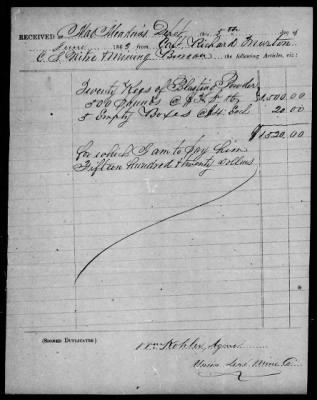 RECEIVED at Mac Meakins Depot this 5th day of
June 1863 from Capt Richard Morton
C. S. Nitre & Mining Bureau the following Articles, viz:
Twenty Kegs of Blasting Powder
500 pounds @ $3 pr lb $1,500.00
5 Empty Boxes @ $4. Each 20.00
$1,520.00
for which I am to pay him
Fifteen hundred & twenty dollars
(SIGNED DUPLICATES.)
Wm Kohler, Agent
Union Lead Mine Co.